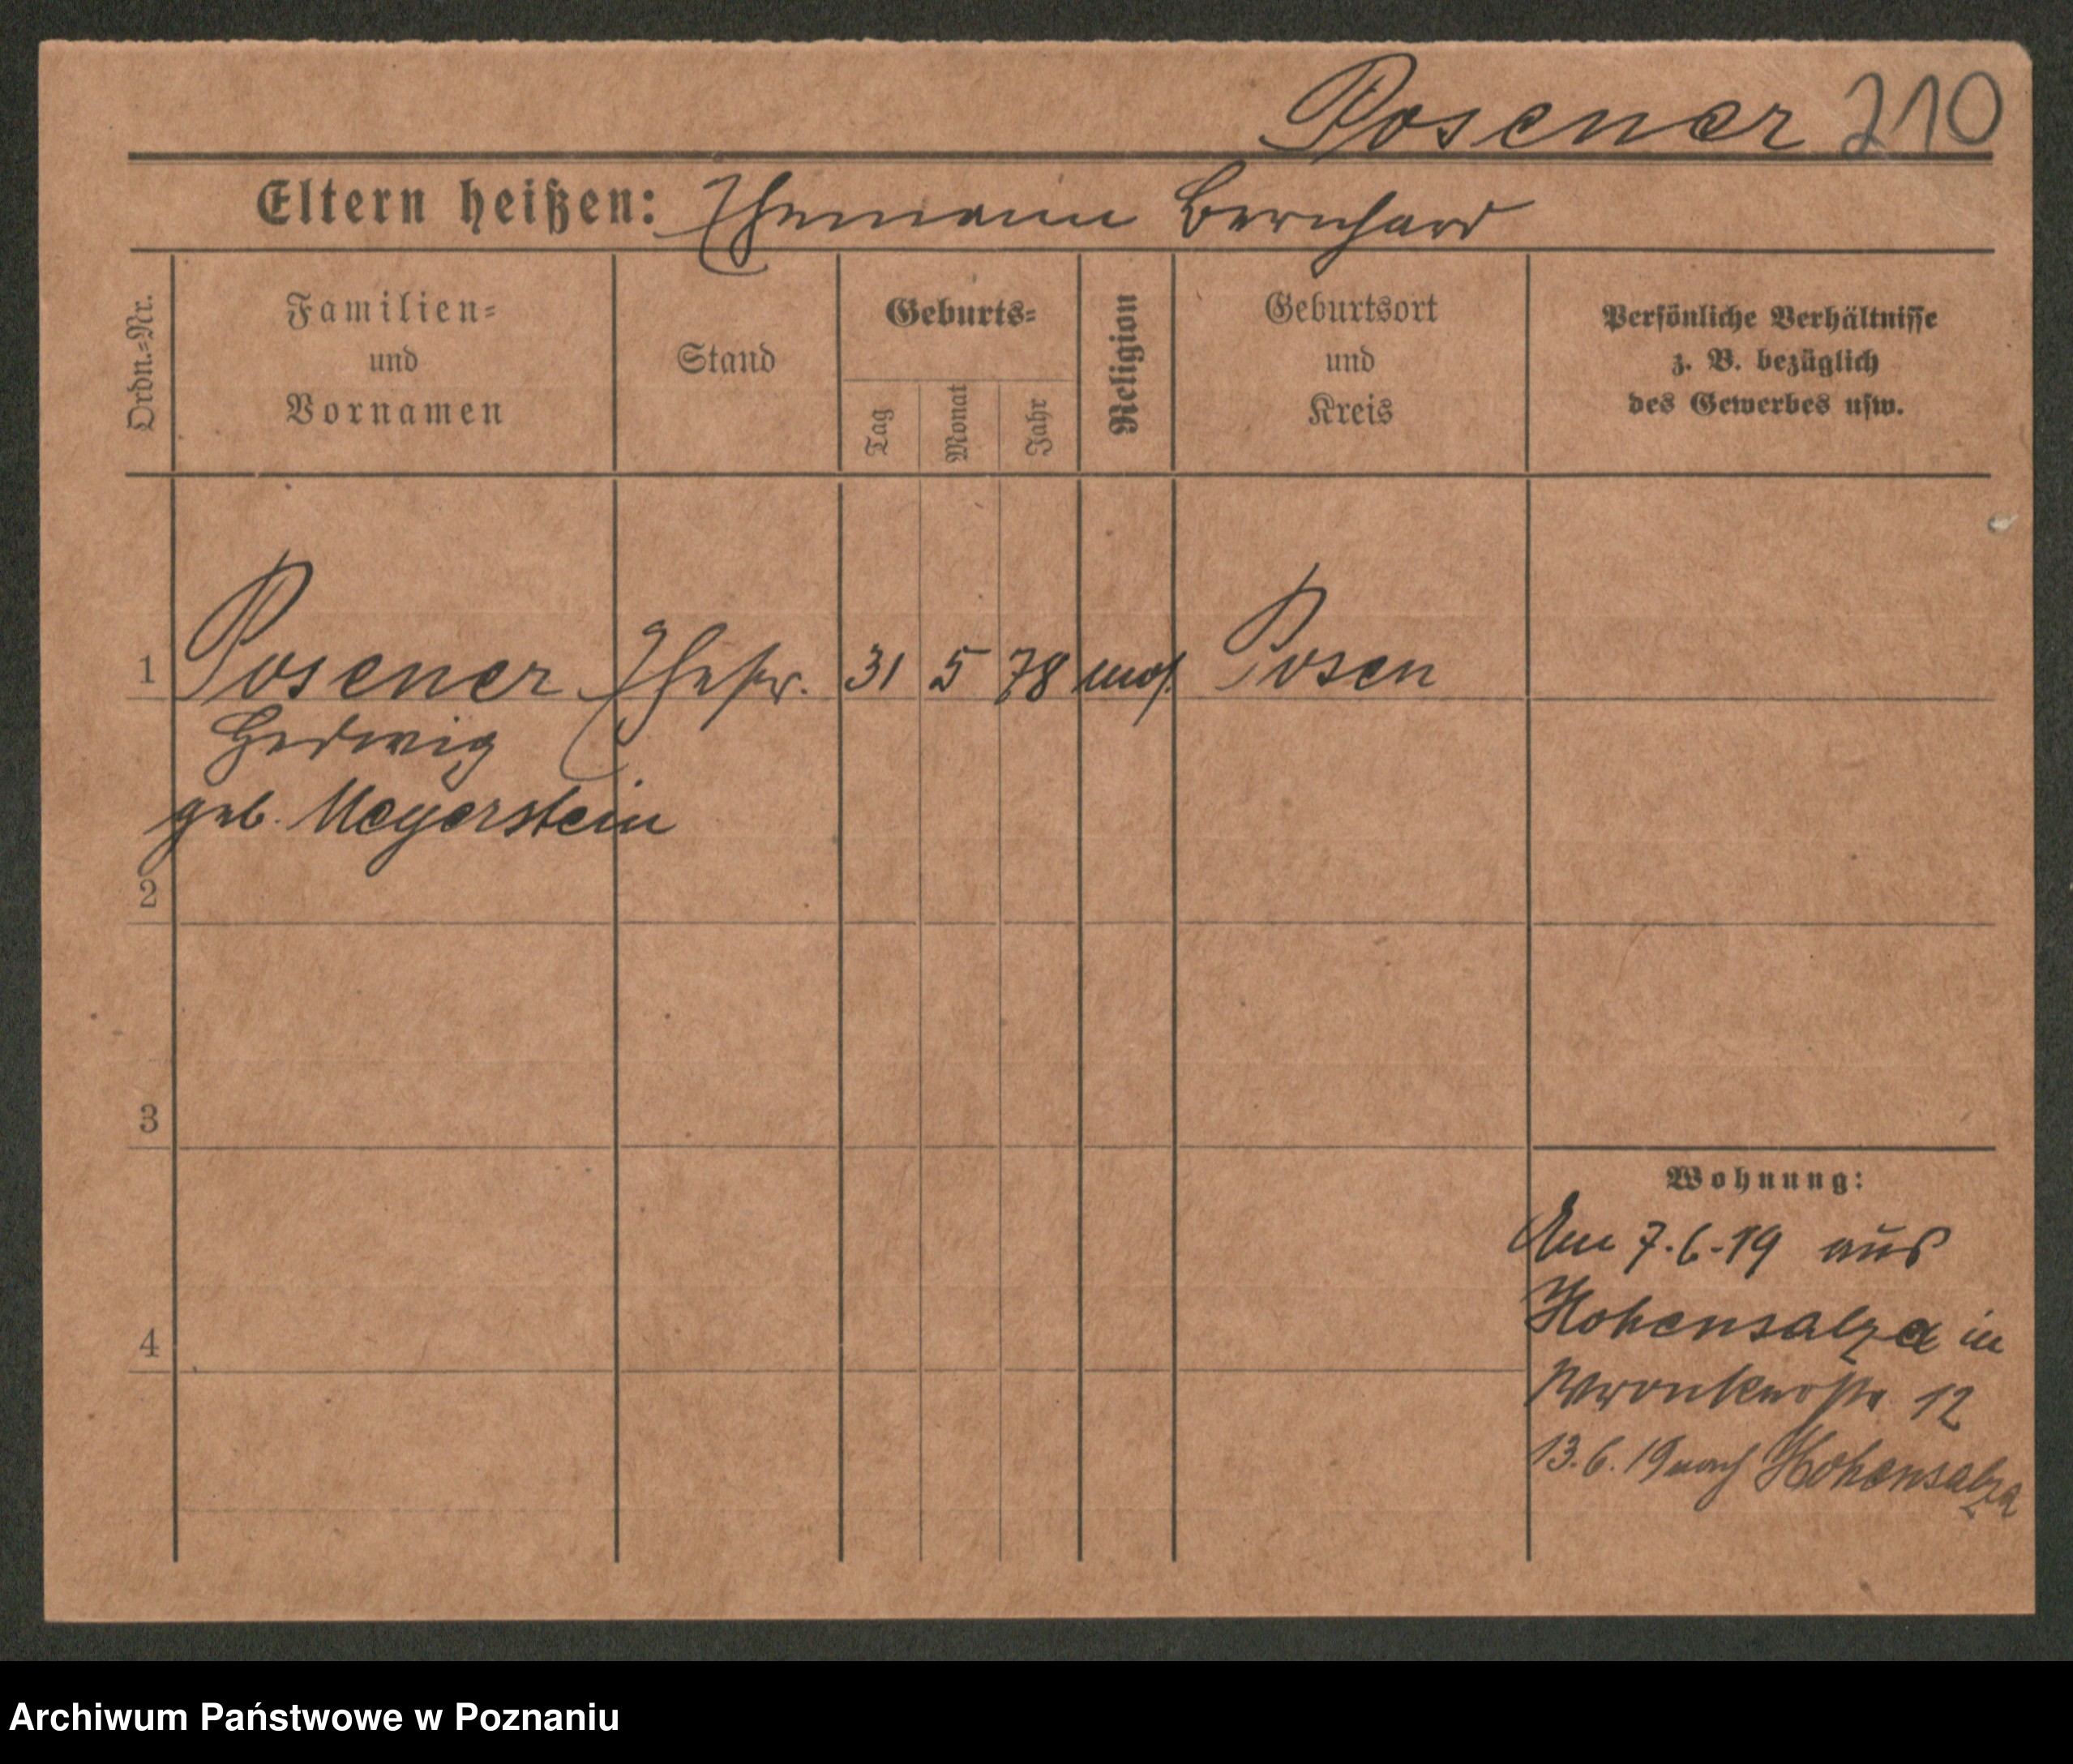 Posener 210
Eltern heißen: Ehemann Bernhard
Ordn.-Nr.
Familien-
und
Vornamen
Stand
Geburts-
Tag
Monat
Jahr
Religion
Geburtsort
und
Kreis
Persönliche Verhältnisse
z. B. bezüglich
des Gewerbes usw.
1 Posener Ehefr. 31 5 78 mos. Posen
Hedwig
geb. Meyerstein
2
3
Wohnung:
Am 7.6.19 aus
Hohensalza in
4
Wronkerstr. 12
13.6.19 nach Hohensalza
Archiwum Państwowe w Poznaniu